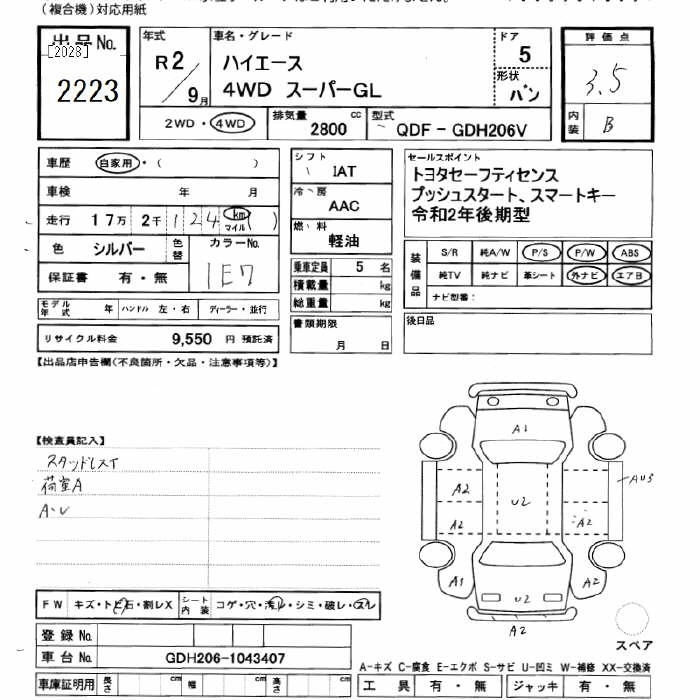 (複合機)対応用紙
出品No.
[2028]
2223
年式
R2/9月
車名・グレード
ハイエース
4WD スーパーGL
ドア
5
形状
バン
評価点
3.5
内装
B
2WD・4WD
排気量
2800 cc
型式
QDF-GDH206V
車歴 自家用・( )
車検 年 月
走行 17万 2千 124 km マイル ( )
色 シルバー 色替 カラーNo.
1E7
保証書 有・無
モデル年式 年 ハンドル 左・右 ディーラー・並行
リサイクル料金 9,550 円 預託済
シフト
IAT
冷・房
AAC
燃料
軽油
乗車定員 5 名
積載量 kg
総重量 kg
書類期限
月 日
セールスポイント
トヨタセーフティセンス
プッシュスタート、スマートキー
令和2年後期型
装備品
S/R 純A/W P/S P/W ABS
純TV 純ナビ 革シート 外ナビ エアB
ナビ型番:
後日品
【出品店申告欄(不良箇所・欠品・注意事項等)】
【検査員記入】
スタッドレスT
荷室A
A・U
A1
A2
U2
A2
A2
A2
AU3
A1
U2
A2
A2
スペア
FW キズ・トビ石・割レX シート内装 コゲ・穴・汚レ・シミ・破レ・スレ
登録No.
車台No. GDH206-1043407
A-キズ C-腐食 E-エクボ S-サビ U-凹ミ W-補修 XX-交換済
車庫証明用 長さ cm 幅 cm 高さ cm
工具 有・無 ジャッキ 有・無